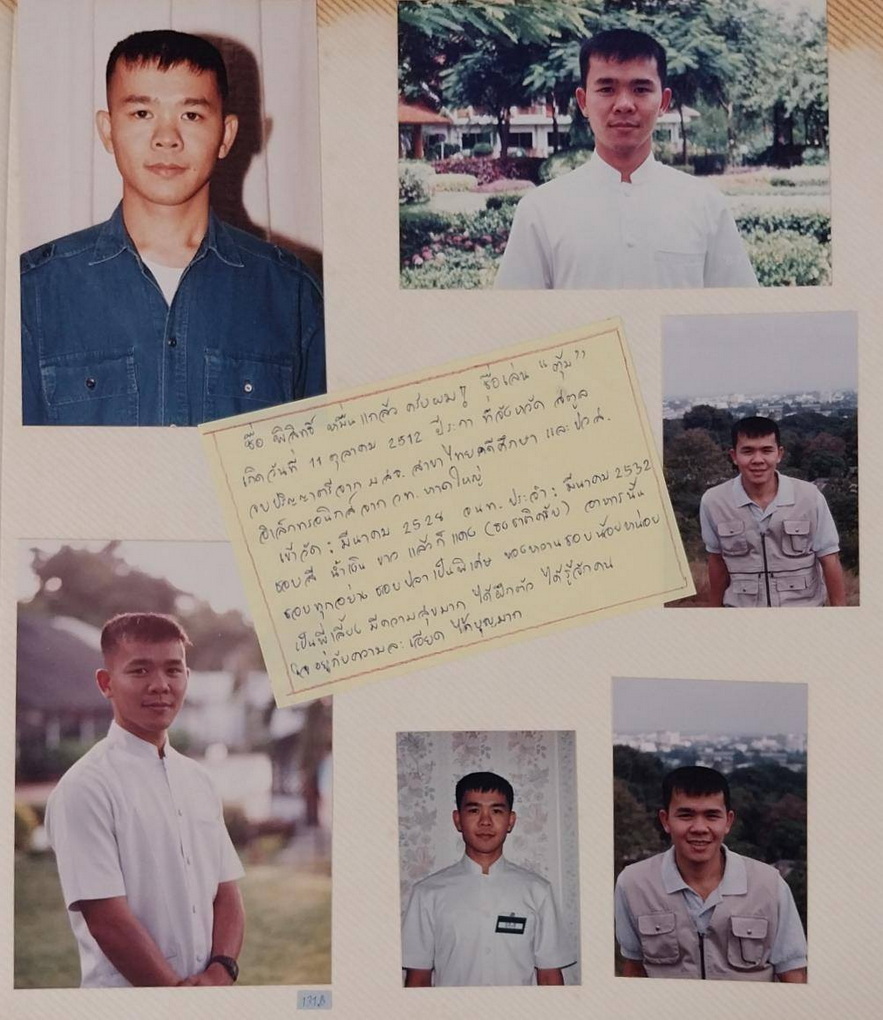 ชื่อ พิสิทธิ์ หมื่นแกล้ว ครับผม! ชื่อเล่น "ตุ้ม"
เกิดวันที่ 11 ตุลาคม 2512 ปีระกา ที่จังหวัด สตูล
จบปริญญาตรีจาก มสธ. สาขาไทยคดีศึกษา และ ปวส.
อิเล็กทรอนิกส์จาก วท. หาดใหญ่
เข้าวัด : มีนาคม 2528 อนท. ประจำ : มีนาคม 2532
ชอบสี น้ำเงิน ขาว แล้วก็ แดง (ธงชาติครับ) อาหารนั้น
ชอบทุกอย่าง ชอบปลาเป็นพิเศษ ของหวานชอบน้อยหน่อย
เป็นพี่เลี้ยง มีความสุขมาก ได้ฝึกตัว ได้รู้จักคน
อยู่กับความละเอียด ได้บุญมาก